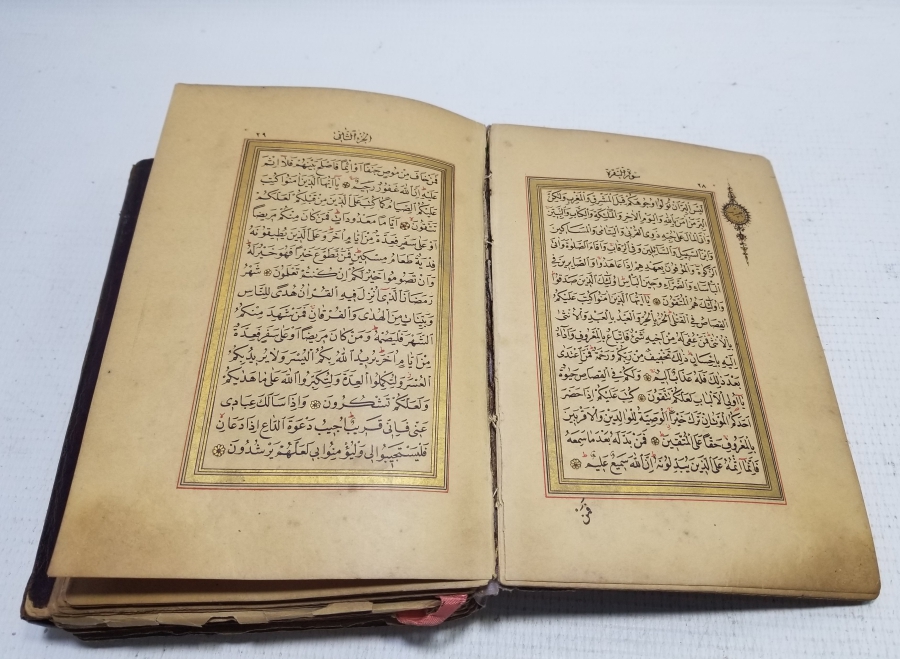 سورة البقرة ٢٨
لَيْسَ الْبِرَّ اَنْ تُوَلُّوا وُجُوهَكُمْ قِبَلَ الْمَشْرِقِ وَالْمَغْرِبِ وَلٰكِنَّ
الْبِرَّ مَنْ اٰمَنَ بِاللهِ وَالْيَوْمِ الْاٰخِرِ وَالْمَلٰئِكَةِ وَالْكِتَابِ وَالنَّبِيّنَ
وَاٰتَى الْمَالَ عَلٰى حُبِّهِ ذَوِى الْقُرْبٰى وَالْيَتَامٰى وَالْمَسَاكِينَ
وَابْنَ السَّبِيلِ وَالسَّائِلِينَ وَفِى الرِّقَابِ وَاَقَامَ الصَّلٰوةَ وَاٰتَى
الزَّكٰوةَ وَالْمُوفُونَ بِعَهْدِهِمْ اِذَا عَاهَدُوا وَالصَّابِرِينَ فِى
الْبَأْسَاءِ وَالضَّرَّاءِ وَحِينَ الْبَأْسِ اُولٰئِكَ الَّذِينَ صَدَقُوا
وَاُولٰئِكَ هُمُ الْمُتَّقُونَ يَا اَيُّهَا الَّذِينَ اٰمَنُوا كُتِبَ عَلَيْكُمُ
الْقِصَاصُ فِى الْقَتْلٰى اَلْحُرُّ بِالْحُرِّ وَالْعَبْدُ بِالْعَبْدِ وَالْاُنْثٰى
بِالْاُنْثٰى فَمَنْ عُفِىَ لَهُ مِنْ اَخِيهِ شَىْءٌ فَاتِّبَاعٌ بِالْمَعْرُوفِ وَاَدَاءٌ
اِلَيْهِ بِاِحْسَانٍ ذٰلِكَ تَخْفِيفٌ مِنْ رَبِّكُمْ وَرَحْمَةٌ فَمَنِ اعْتَدٰى
بَعْدَ ذٰلِكَ فَلَهُ عَذَابٌ اَلِيمٌ وَلَكُمْ فِى الْقِصَاصِ حَيٰوةٌ
يَا اُولِى الْاَلْبَابِ لَعَلَّكُمْ تَتَّقُونَ كُتِبَ عَلَيْكُمْ اِذَا حَضَرَ
اَحَدَكُمُ الْمَوْتُ اِنْ تَرَكَ خَيْرًا الْوَصِيَّةُ لِلْوَالِدَيْنِ وَالْاَقْرَبِينَ
بِالْمَعْرُوفِ حَقًّا عَلَى الْمُتَّقِينَ فَمَنْ بَدَّلَهُ بَعْدَ مَا سَمِعَهُ
فَاِنَّمَا اِثْمُهُ عَلَى الَّذِينَ يُبَدِّلُونَهُ اِنَّ اللهَ سَمِيعٌ عَلِيمٌ
فَمَنْ
الجزء الثانى ٢٩
فَمَنْ خَافَ مِنْ مُوصٍ جَنَفًا اَوْ اِثْمًا فَاَصْلَحَ بَيْنَهُمْ فَلَا اِثْمَ
عَلَيْهِ اِنَّ اللهَ غَفُورٌ رَحِيمٌ يَا اَيُّهَا الَّذِينَ اٰمَنُوا كُتِبَ
عَلَيْكُمُ الصِّيَامُ كَمَا كُتِبَ عَلَى الَّذِينَ مِنْ قَبْلِكُمْ لَعَلَّكُمْ
تَتَّقُونَ اَيَّامًا مَعْدُودَاتٍ فَمَنْ كَانَ مِنْكُمْ مَرِيضًا
اَوْ عَلٰى سَفَرٍ فَعِدَّةٌ مِنْ اَيَّامٍ اُخَرَ وَعَلَى الَّذِينَ يُطِيقُونَهُ
فِدْيَةٌ طَعَامُ مِسْكِينٍ فَمَنْ تَطَوَّعَ خَيْرًا فَهُوَ خَيْرٌ لَهُ
وَاَنْ تَصُومُوا خَيْرٌ لَكُمْ اِنْ كُنْتُمْ تَعْلَمُونَ شَهْرُ
رَمَضَانَ الَّذِى اُنْزِلَ فِيهِ الْقُرْاٰنُ هُدًى لِلنَّاسِ
وَبَيِّنَاتٍ مِنَ الْهُدٰى وَالْفُرْقَانِ فَمَنْ شَهِدَ مِنْكُمُ
الشَّهْرَ فَلْيَصُمْهُ وَمَنْ كَانَ مَرِيضًا اَوْ عَلٰى سَفَرٍ فَعِدَّةٌ
مِنْ اَيَّامٍ اُخَرَ يُرِيدُ اللهُ بِكُمُ الْيُسْرَ وَلَا يُرِيدُ بِكُمُ
الْعُسْرَ وَلِتُكْمِلُوا الْعِدَّةَ وَلِتُكَبِّرُوا اللهَ عَلٰى مَا هَدٰيكُمْ
وَلَعَلَّكُمْ تَشْكُرُونَ وَاِذَا سَاَلَكَ عِبَادِى
عَنِّى فَاِنِّى قَرِيبٌ اُجِيبُ دَعْوَةَ الدَّاعِ اِذَا دَعَانِ
فَلْيَسْتَجِيبُوا لِى وَلْيُؤْمِنُوا بِى لَعَلَّهُمْ يَرْشُدُونَ